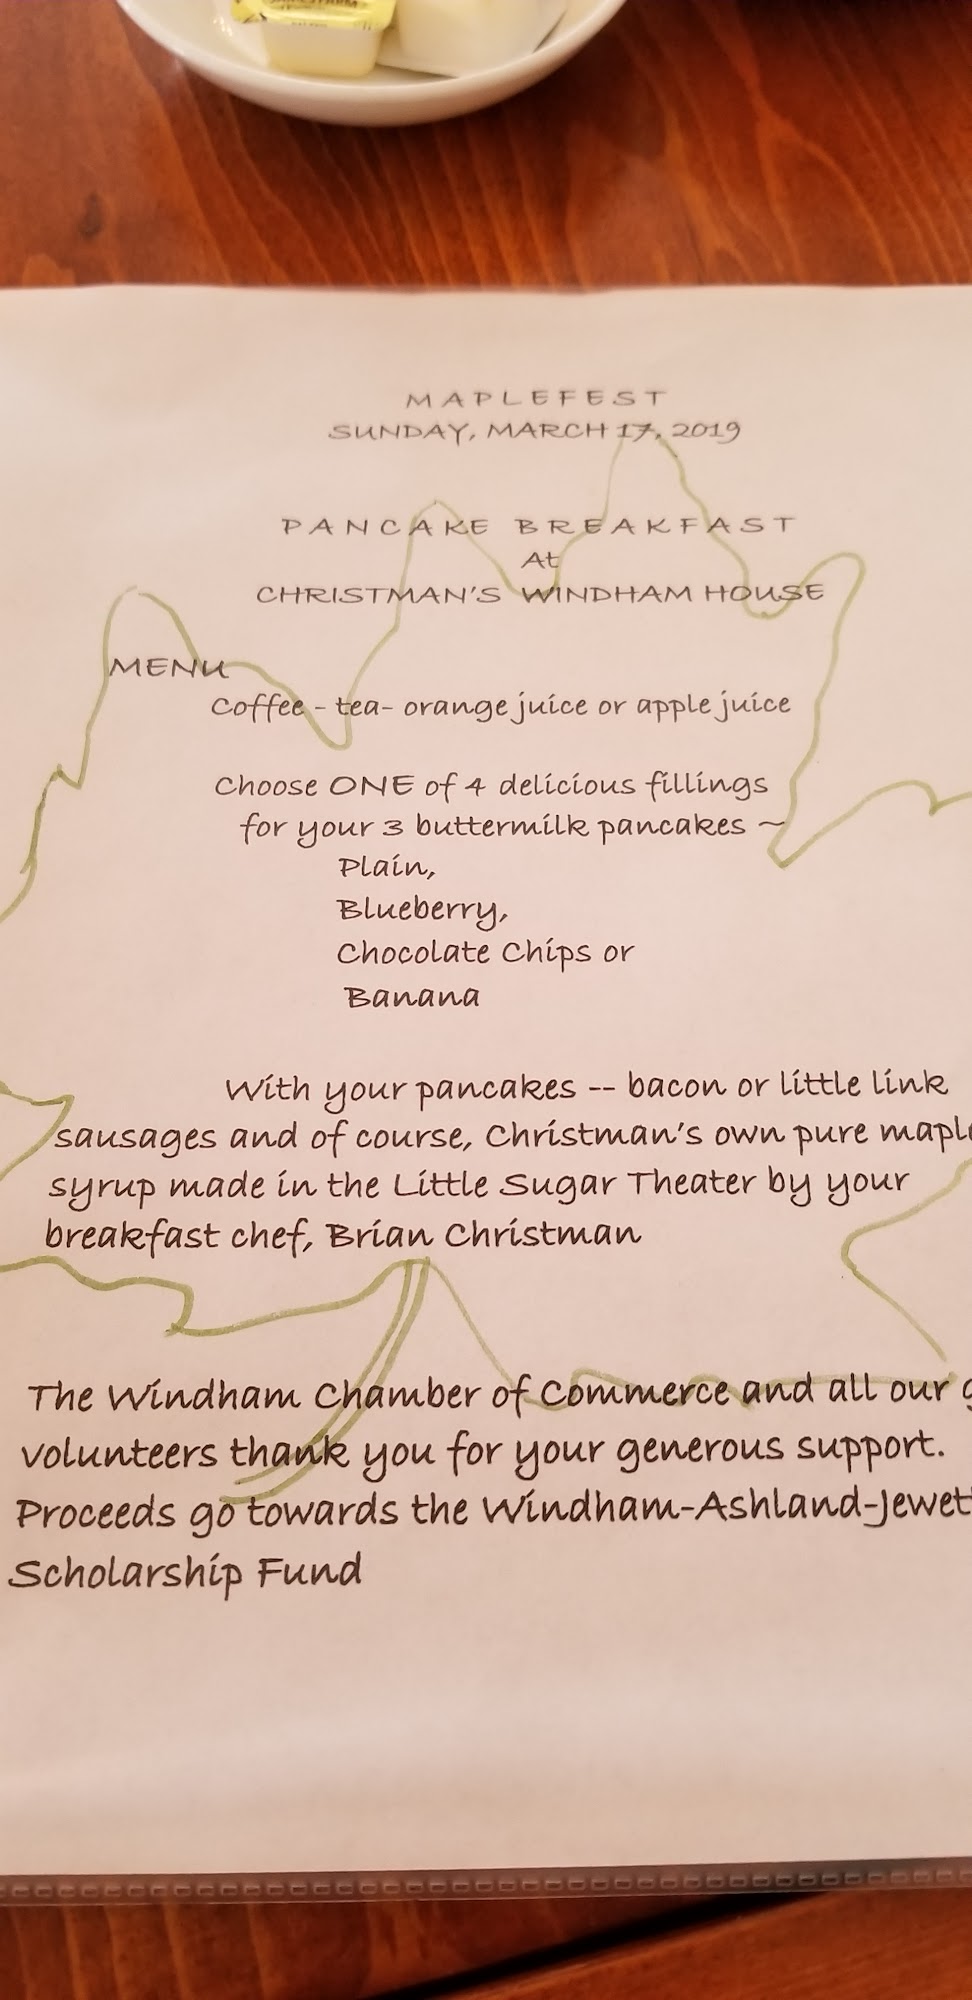 MAPLEFEST
SUNDAY, MARCH 17, 2019
PANCAKE BREAKFAST
At
CHRISTMAN'S WINDHAM HOUSE
MENU
Coffee - tea- orange juice or apple juice
Choose ONE of 4 delicious fillings
for your 3 buttermilk pancakes ~
Plain,
Blueberry,
Chocolate Chips or
Banana
With your pancakes -- bacon or little link
sausages and of course, Christman's own pure maple
syrup made in the Little Sugar Theater by your
breakfast chef, Brian Christman
The Windham Chamber of Commerce and all our
volunteers thank you for your generous support.
Proceeds go towards the Windham-Ashland-Jewett
Scholarship Fund